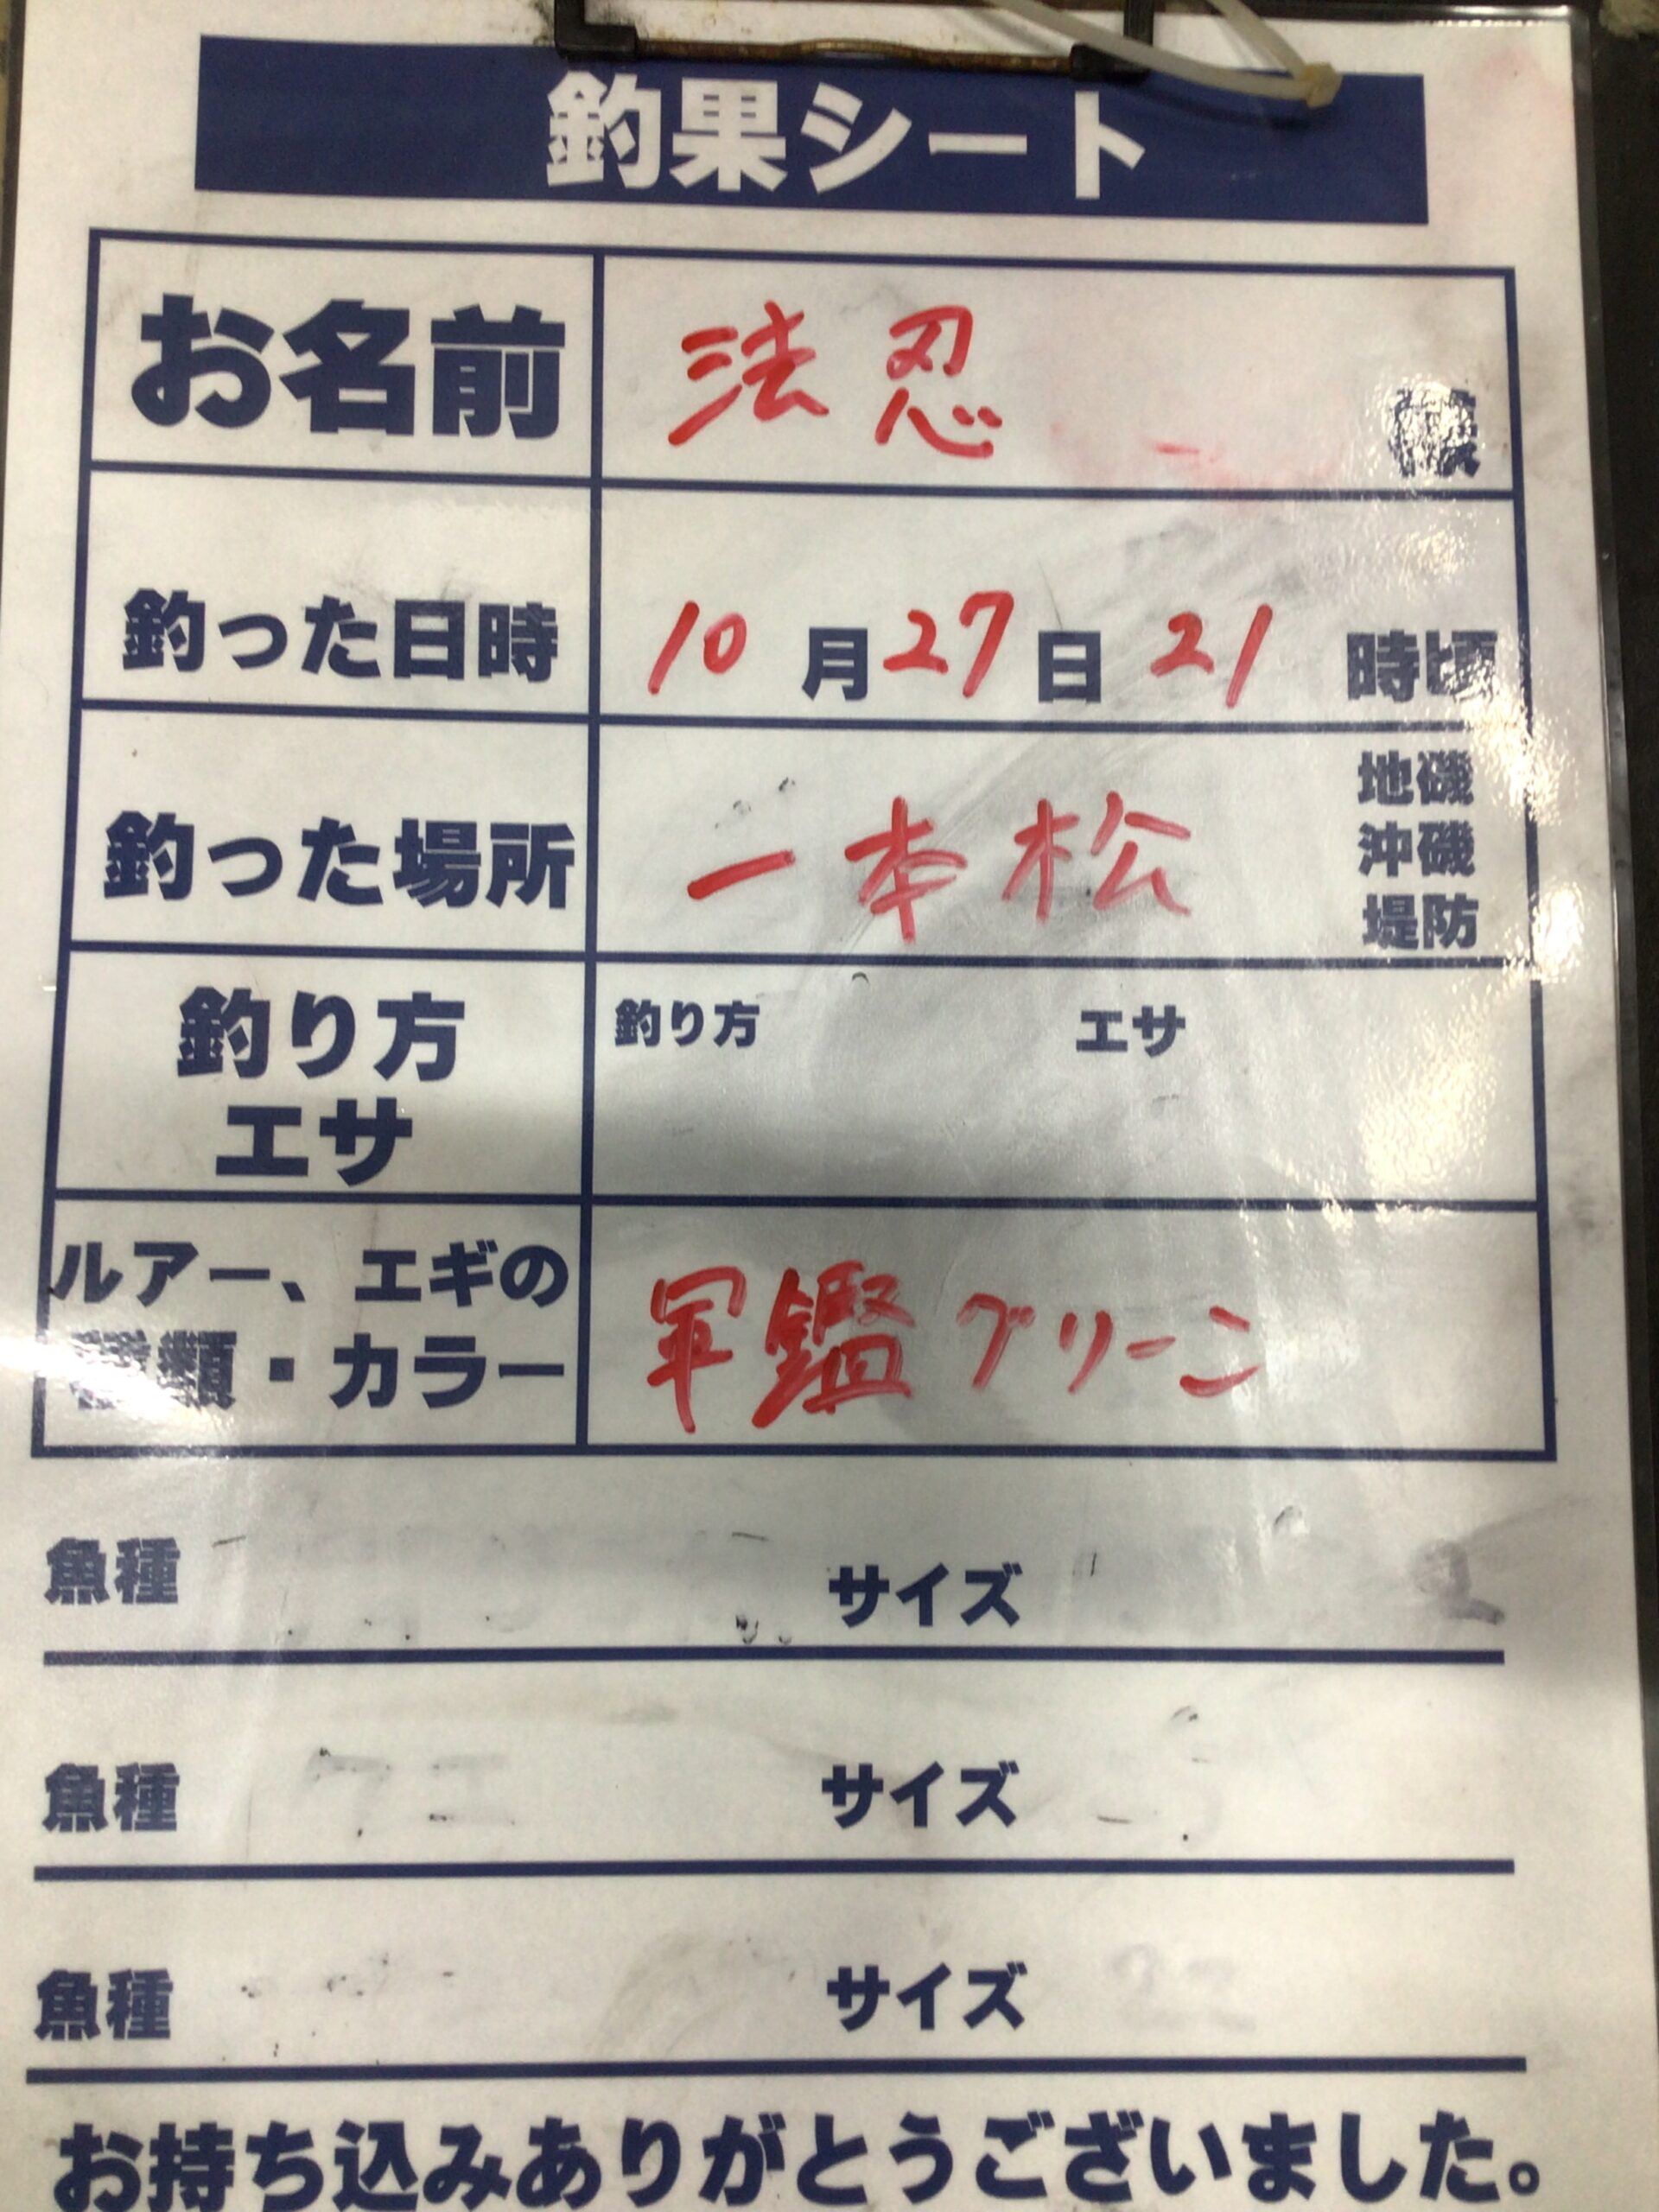 釣果シート
お名前 法忍 様
釣った日時 10月27日 21時頃
釣った場所 一本松 地磯
沖磯
堤防
釣り方
エサ
釣り方 エサ
ルアー、エギの
種類・カラー
軍鑑グリーン
魚種 サイズ
魚種 サイズ
魚種 サイズ
お持ち込みありがとうございました。